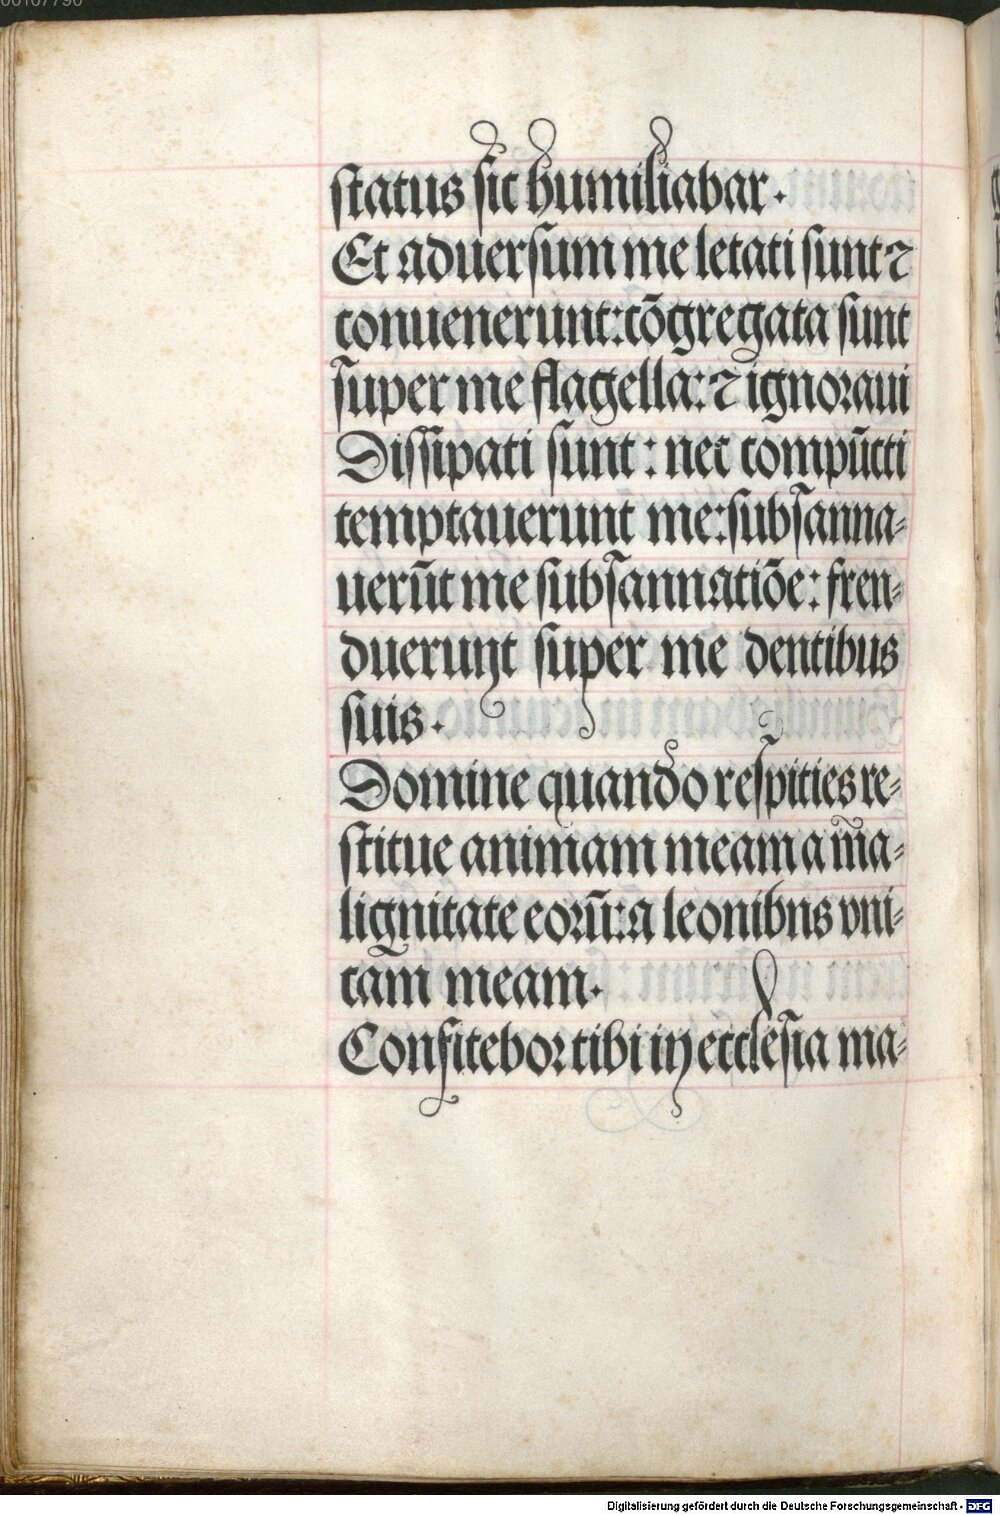 status sic humiliabar.
Et aduersum me letati sunt ⁊
conuenerunt: cōgregata sunt
super me flagella: ⁊ ignoraui
Dissipati sunt: nec compūcti
temptauerunt me: subsanna-
uerūt me subsannatiōe: fren-
duerunt super me dentibus
suis.
Domine quando respicies re-
stitue animam meam a ma-
lignitate eorū: a leonibus vni-
cam meam.
Confitebor tibi in ecclesia ma-
Digitalisierung gefördert durch die Deutsche Forschungsgemeinschaft - DFG